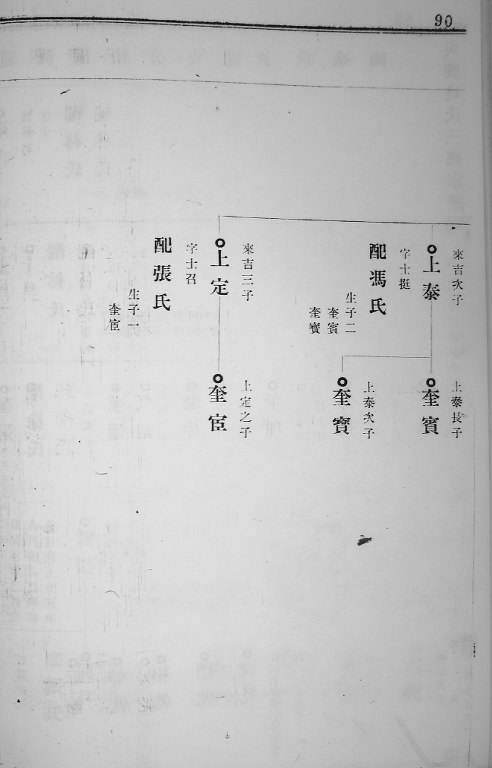 90
來吉次子
上泰
字士挺
配馮氏
生子二
奎賓
奎寶
來吉三子
上定
字士召
配張氏
生子一
奎宦
上泰長子
奎賓
上泰次子
奎寶
上定之子
奎宦